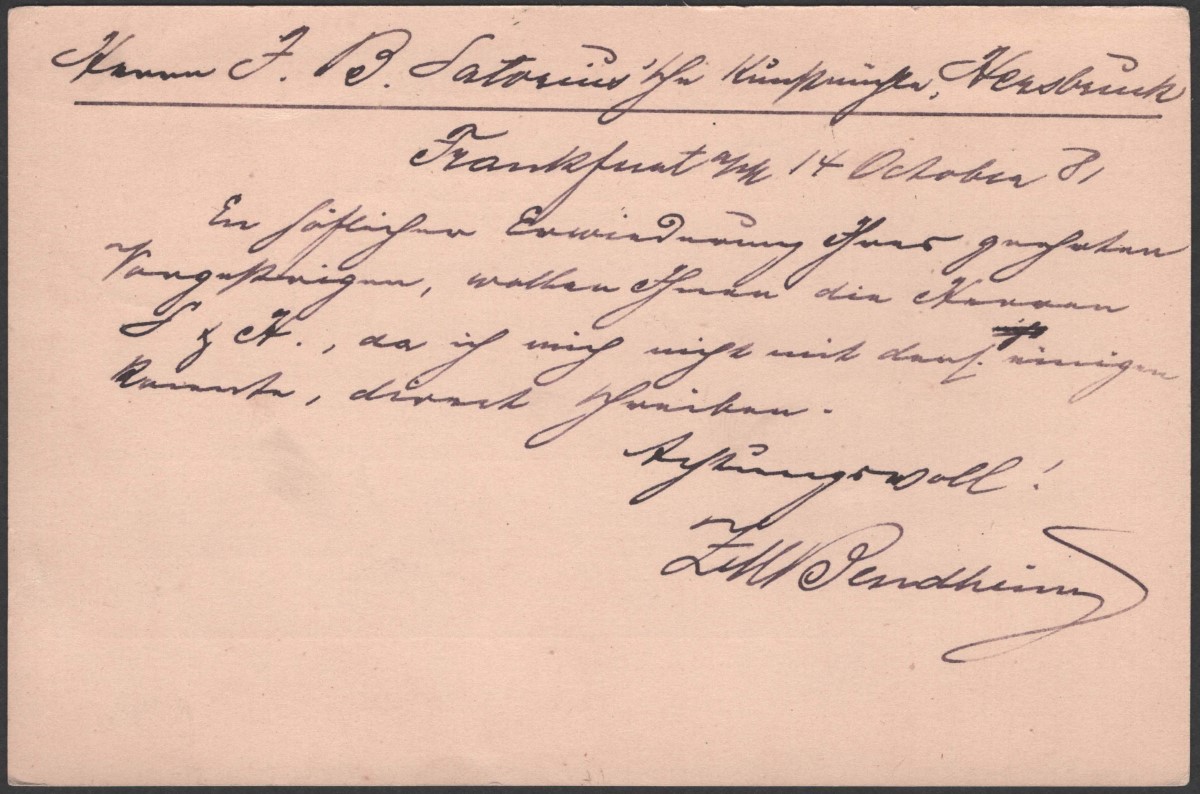 Herrn J. B. Satorius'sche Kunstmühle, Hersbruck
Frankfurt a/M 14 October 81
In höflicher Erwiederung Ihres geehrten
Vorgestrigen, wollen Ihnen die Herren
S & H., da ich mich nicht mit dens. einigen
konnte, direct schreiben.
Achtungsvoll!
Bendheim